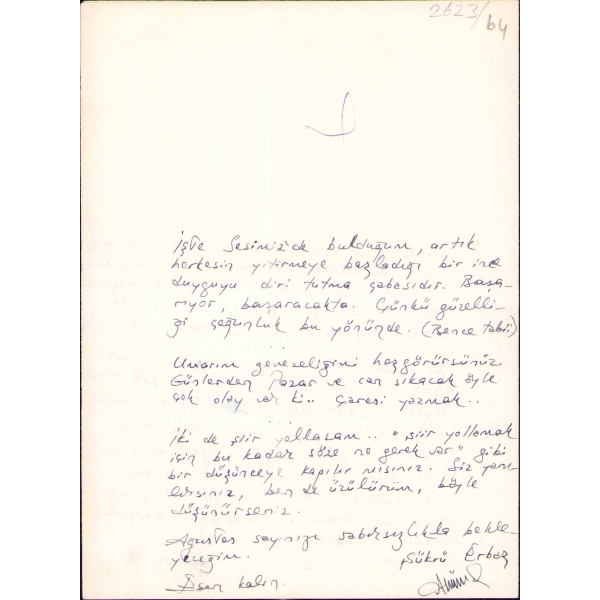 2623/64
İşte Sesimiz'de bulduğum, artık
herkesin yitirmeye başladığı bir ince
duyguyu diri tutma çabasıdır. Başa-
rıyor, başaracakta. Çünkü güzelli-
ği çoğunluk bu yönünde. (Bence tabii)
Umarım gevezeliğimi hoşgörürsünüz.
Günlerden Pazar ve can sıkacak öyle
çok olay var ki.. Çaresi yazmak..
İki de şiir yollasam.. "şiir yollamak
için bu kadar söze ne gerek var" gibi
bir düşünceye kapılır mısınız. Siz yanı
lırsınız, ben de üzülürüm, böyle
düşünürseniz.
Ağustos sayınızı sabırsızlıkla bekle-
yeceğim. Şükrü Erbaş
Esen kalın.